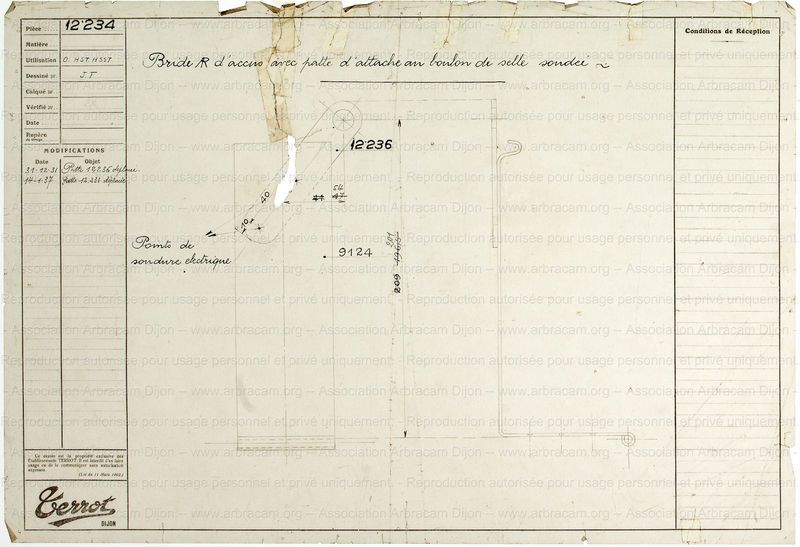 Pièce 12·234
Matière
Utilisation O. HST HSST
Dessiné par J.T
Calqué par
Vérifié par
Date
Repère
MODIFICATIONS
Date Objet
31-12-31 Patte 12.236 déplacée
14-1-37 Patte 12.231 déplacée
Bride R d'accus avec patte d'attache au boulon de selle soudée
Conditions de Réception
12·236
40
54
47
Points de
soudure électrique
9124
201
209
Ce dessin est la propriété exclusive des
Etablissements TERROT. Il est interdit d'en faire
usage ou de le communiquer sans autorisation
expresse.
(Loi du 11 Mars 1902.)
Terrot
DIJON
Reproduction autorisée pour usage personnel et privé uniquement.
Association Arbracam Dijon – www.arbracam.org